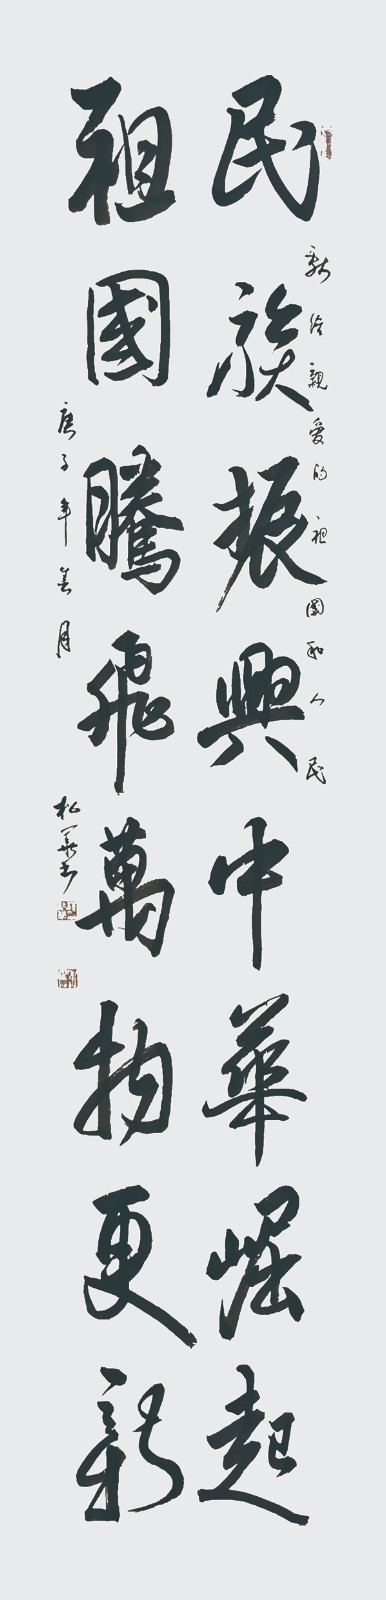 献给親爱的祖國和人民
民族振興中華崛起
祖國騰飛萬物更新
庚子年春月
松嶺書